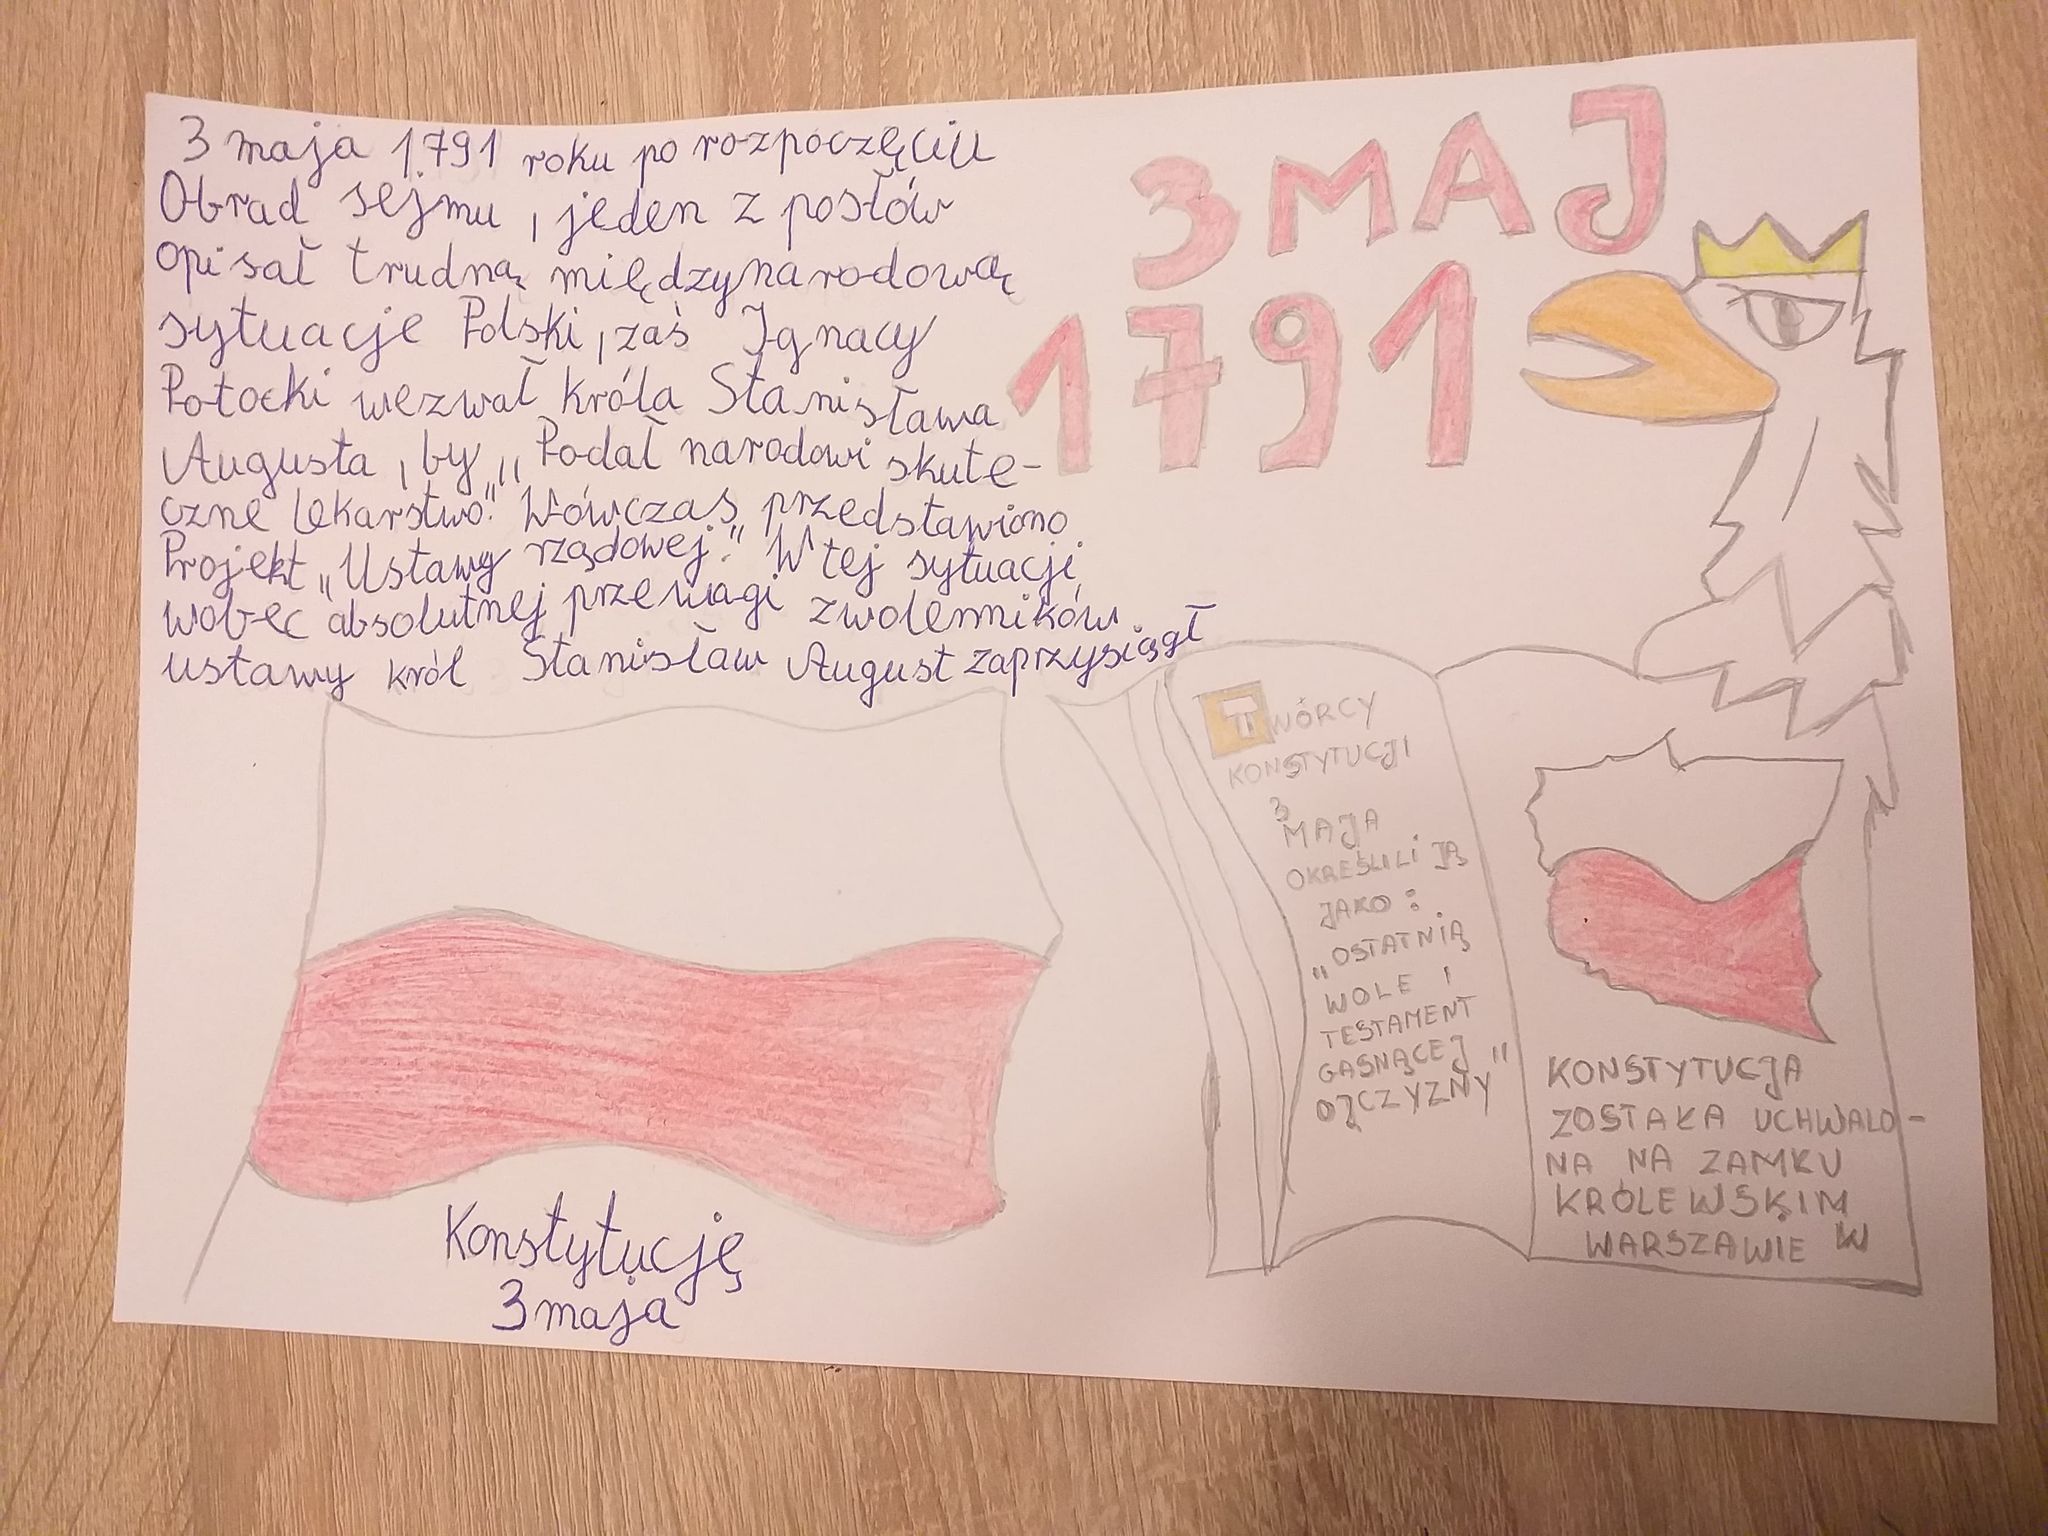 3 maja 1791 roku po rozpoczęciu
Obrad sejmu, jeden z posłów
opisał trudną międzynarodową
sytuacje Polski, zaś Ignacy
Potocki wezwał króla Stanisława
Augusta, by „Podał narodowi skute-
czne lekarstwo". Wówczas przedstawiono
Projekt „Ustawy rządowej." W tej sytuacji,
wobec absolutnej przewagi zwolenników
ustawy król Stanisław August zaprzysiągł
Konstytucję
3 maja
3 MAJ
1791
TWÓRCY
KONSTYTUCJI
3
MAJA
OKREŚLILI JĄ
JAKO:
„OSTATNIĄ
WOLE I
TESTAMENT
GASNĄCEJ
OJCZYZNY"
KONSTYTUCJA
ZOSTAŁA UCHWALO-
NA NA ZAMKU
KRÓLEWSKIM
WARSZAWIE W